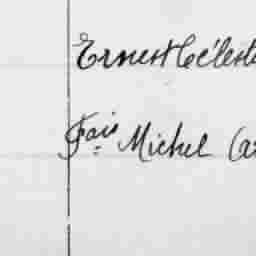 Ernest Céleste
Fçois Michel Ca